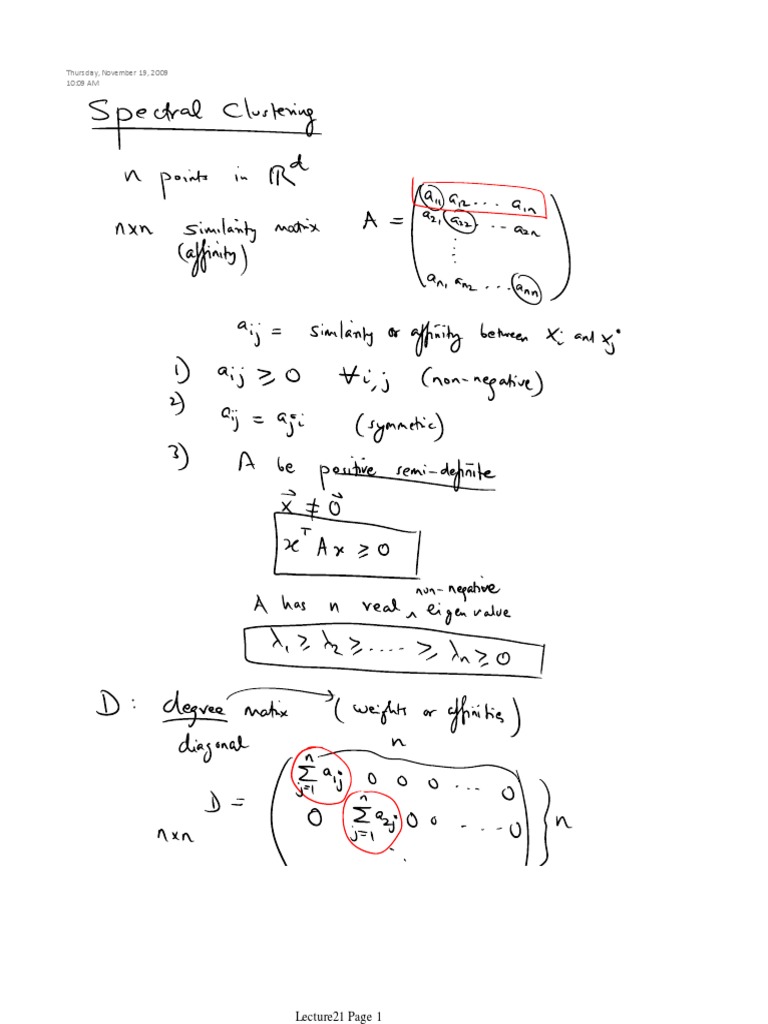 Thursday, November 19, 2009
10:09 AM
Spectral Clustering
n points in ℝ^d
n×n similarity matrix A =
(affinity)
a₁₁ a₁₂ ... a₁ₙ
a₂₁ a₂₂ ... a₂ₙ
⋮
aₙ₁ aₙ₂ ... aₙₙ
aᵢⱼ = similarity or affinity between xᵢ and xⱼ
1) aᵢⱼ ≥ 0 ∀i,j (non-negative)
2) aᵢⱼ = aⱼᵢ (symmetric)
3) A be positive semi-definite
x⃗ ≠ 0⃗
xᵀAx ≥ 0
non-negative
A has n real ^ eigen value
λ₁ ≥ λ₂ ≥ .... ≥ λₙ ≥ 0
D: degree matrix (weights or affinities)
diagonal
n
D =
n×n
∑ⱼ₌₁ⁿ a₁ⱼ 0 0 0 ... 0
0 ∑ⱼ₌₁ⁿ a₂ⱼ 0 0 ... 0
n
Lecture21 Page 1